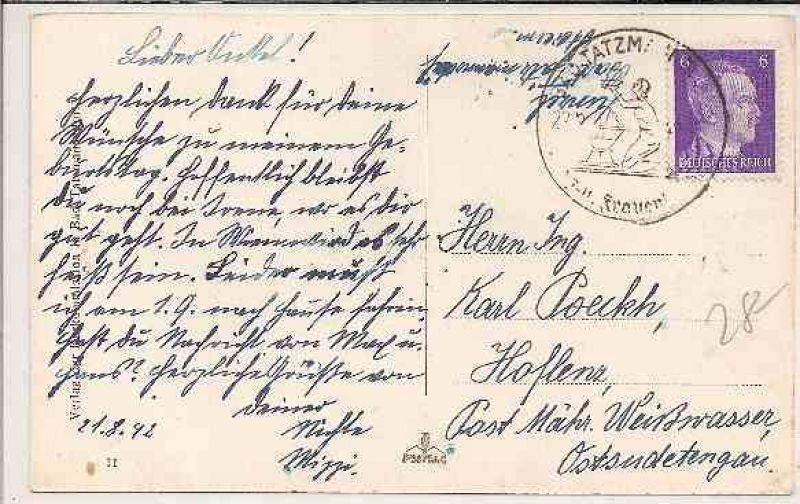 Lieber Onkel!
Herzlichen Dank für deine
Wünsche zu meinem Ge-
burtstag. Hoffentlich bleibst
du noch bei Irene, wo es dir
gut geht. In Wien wird es sehr
heiß sein. Leider muß
ich am 1.9. nach Hause fahren.
Hast du Nachricht von Max u.
Hans? Herzliche Grüße von
deiner
Nichte
Mizzi.
21.8.42
II
TATZM
Frauen
6 6
DEUTSCHES REICH
Herrn Ing.
Karl Poeckh,
Hoflenz,
Post Mähr. Weißwasser,
Ostsudetengau.
28